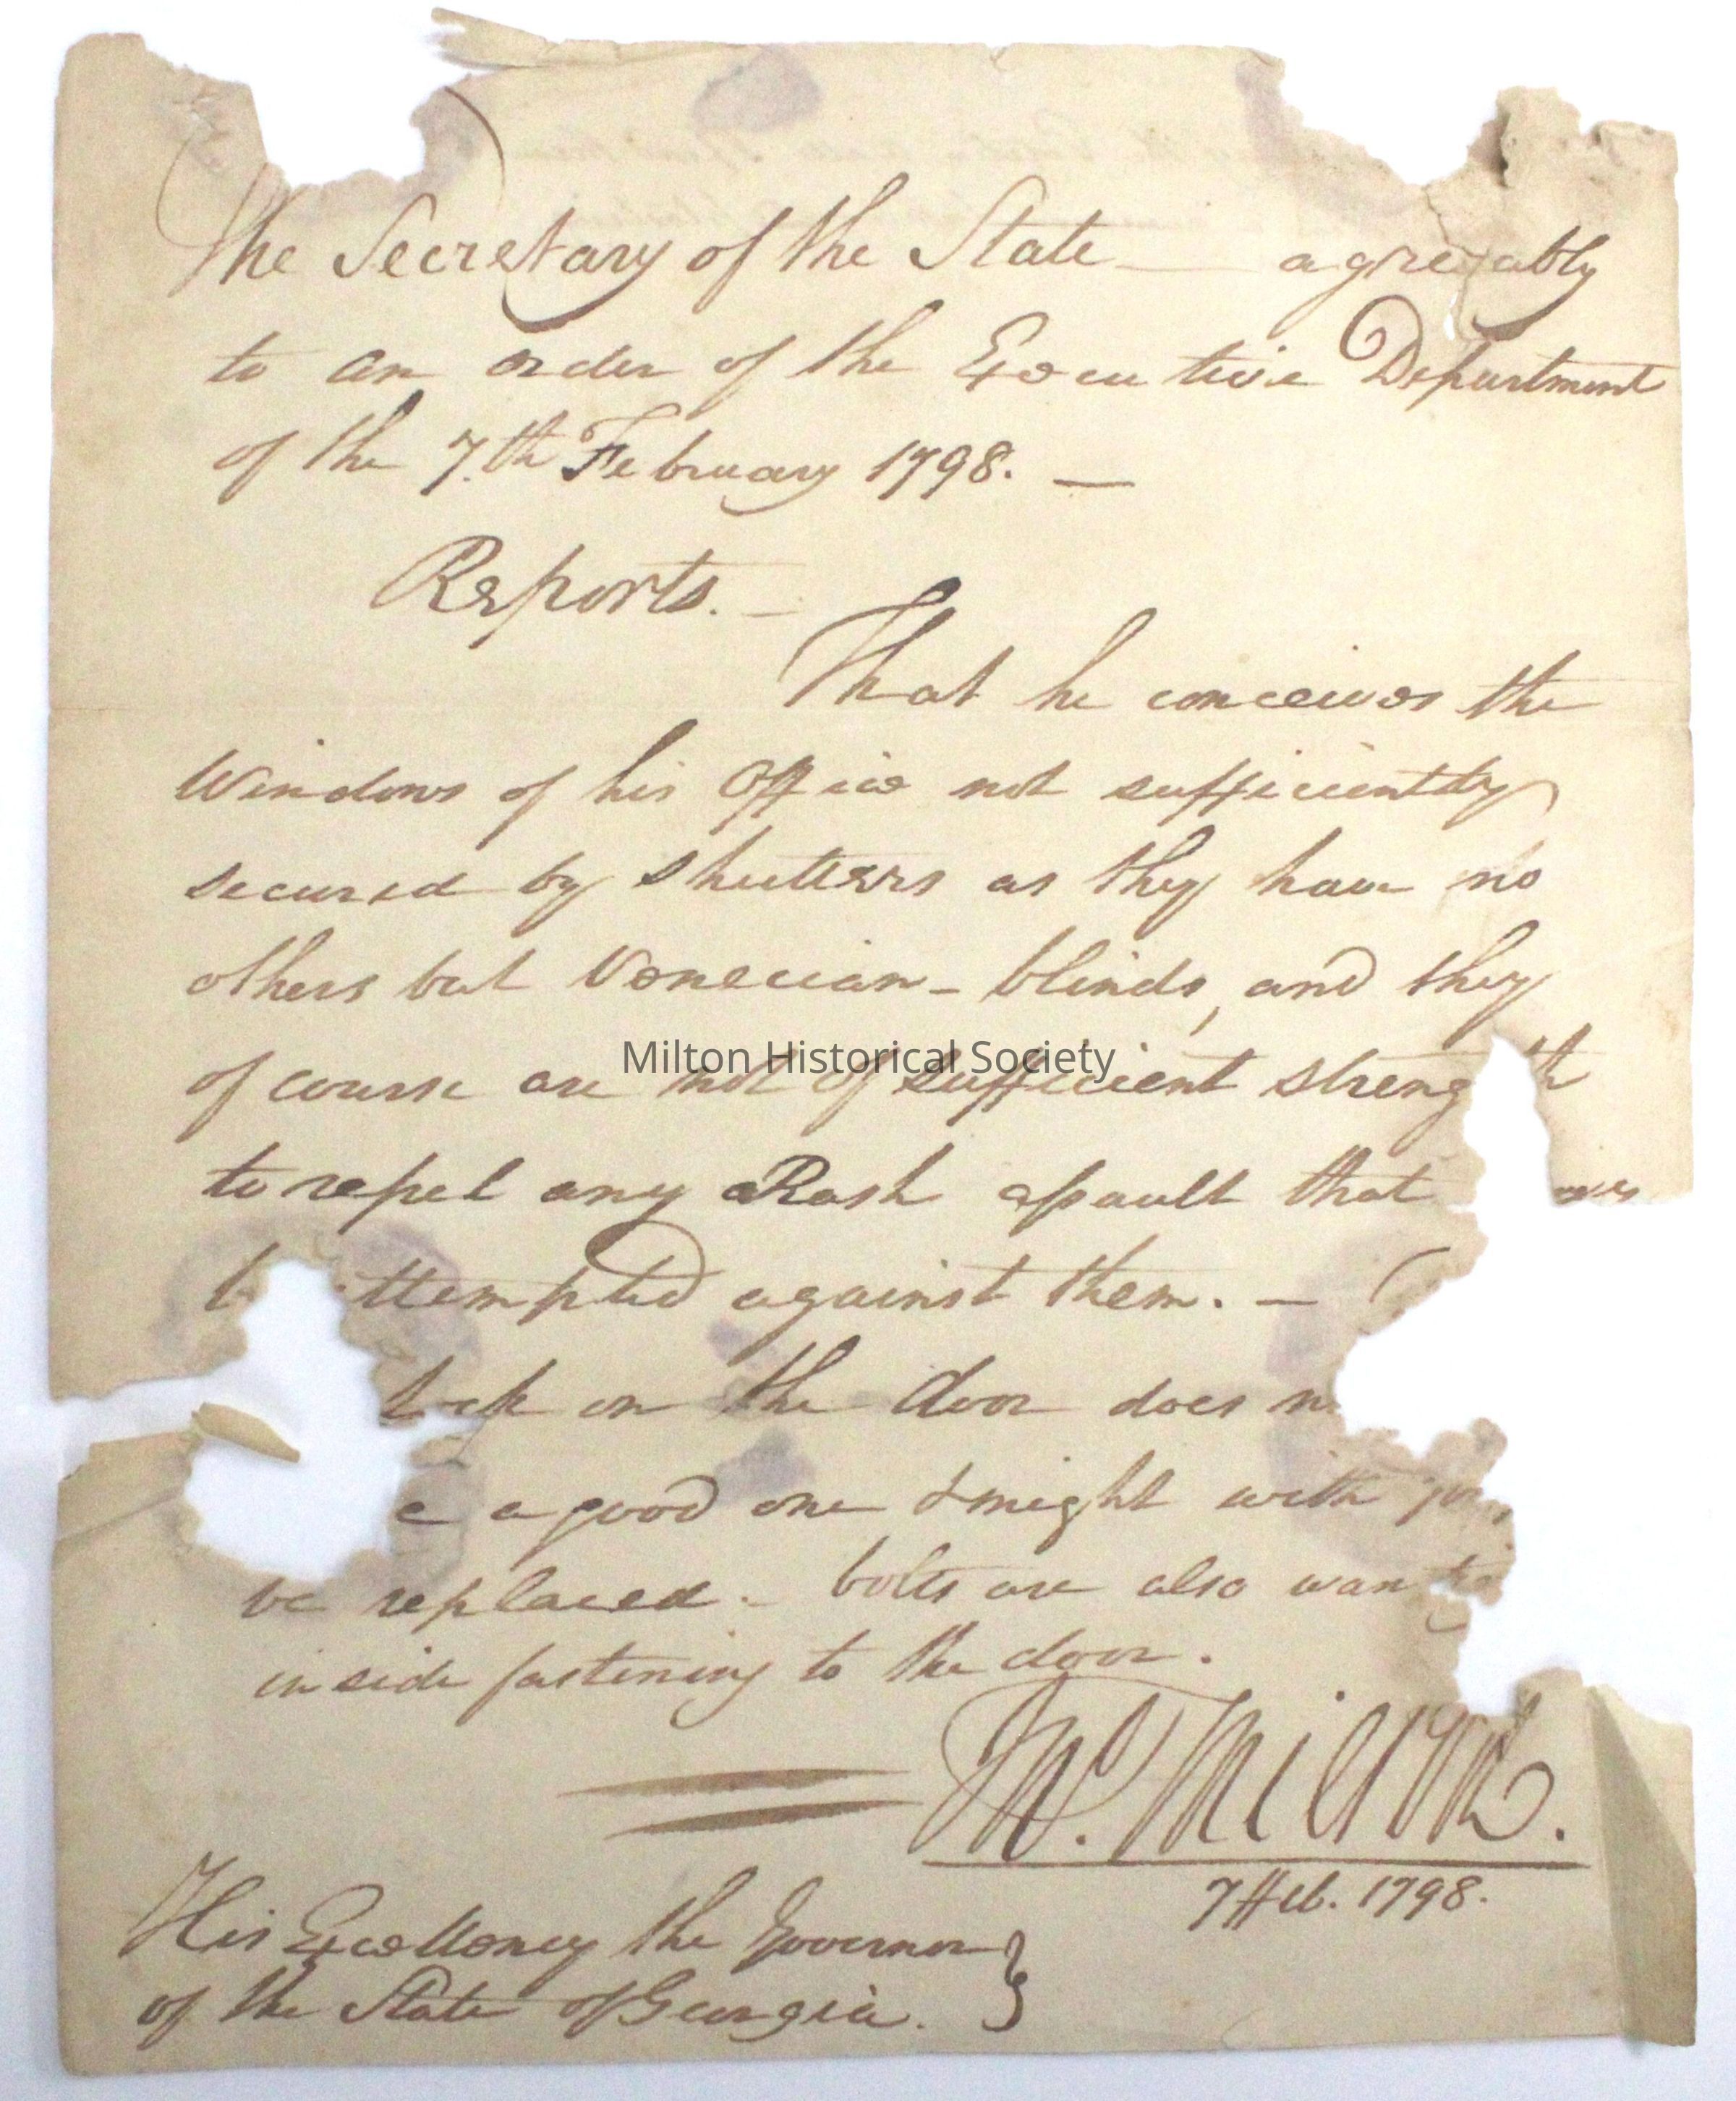 The Secretary of the State — agreeably
to an order of the Executive Department
of the 7.th February 1798. —
Reports. —
That he conceives the
Windows of his Office not sufficiently
secured by shutters as they have no
others but Venecian - blinds, and they
Milton Historical Society
of course are not of sufficient strength
to repel any Rash assault that
attempted against them. —
lock on the door does
a good one & might with
be replaced. - bolts are also
inside fastening to the door.
Jno. Milton.
7 Feb. 1798.
His Excellency the Governor
of the State of Georgia.